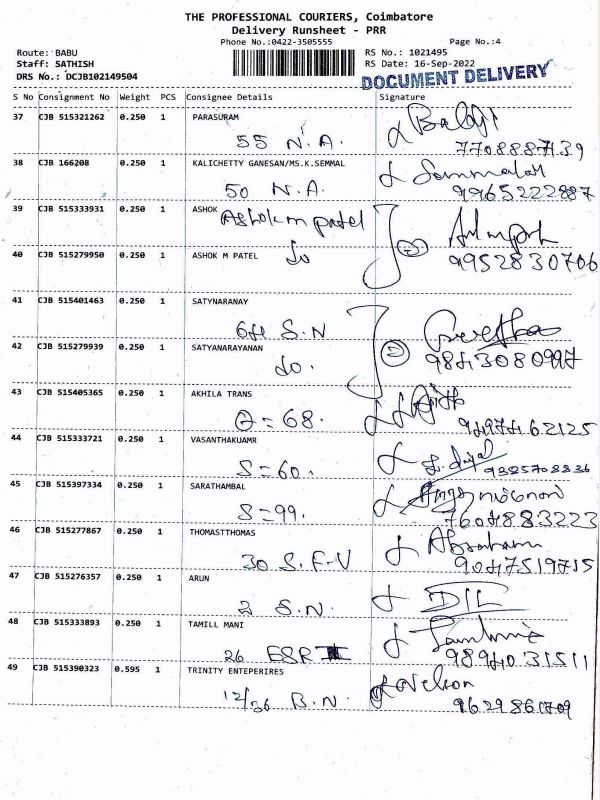 THE PROFESSIONAL COURIERS, Coimbatore
Delivery Runsheet - PRR
Phone No.:0422-3505555 Page No.:4
Route: BABU RS No.: 1021495
Staff: SATHISH RS Date: 16-Sep-2022
DRS No.: DCJB102149504 DOCUMENT DELIVERY
S No Consignment No Weight PCS Consignee Details Signature
37 CJB 515321262 0.250 1 PARASURAM
55 N.A. 7708887139
38 CJB 166208 0.250 1 KALICHETTY GANESAN/MS.K.SEMMAL
50 N.A. 9965222887
39 CJB 515333931 0.250 1 ASHOK
Ashok m patel
40 CJB 515279950 0.250 1 ASHOK M PATEL
do 9952830706
41 CJB 515401463 0.250 1 SATYNARANAY
64 S.N
42 CJB 515279939 0.250 1 SATYANARAYANAN
do. 9843080997
43 CJB 515405365 0.250 1 AKHILA TRANS
= 68. 9497462125
44 CJB 515333721 0.250 1 VASANTHAKUAMR
S=60. 9385708836
45 CJB 515397334 0.250 1 SARATHAMBAL
S=99. 7604883223
46 CJB 515277867 0.250 1 THOMASTTHOMAS
Abraham
30 S.F.V 9047519715
47 CJB 515276357 0.250 1 ARUN
2 S.N.
48 CJB 515333893 0.250 1 TAMILL MANI
26 ESR 9894031511
49 CJB 515390323 0.595 1 TRINITY ENTEPERIRES
Nelson
12/36 B.N. 9629861709